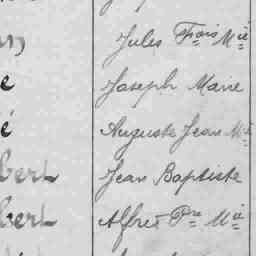 Jules Fçois Mie
e Joseph Marie
é Auguste Jean Mie
bert Jean Baptiste
bert Alfred Pre Mie